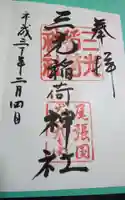 奉拝
三光稲荷神社
尾張国
平成三十年二月四日